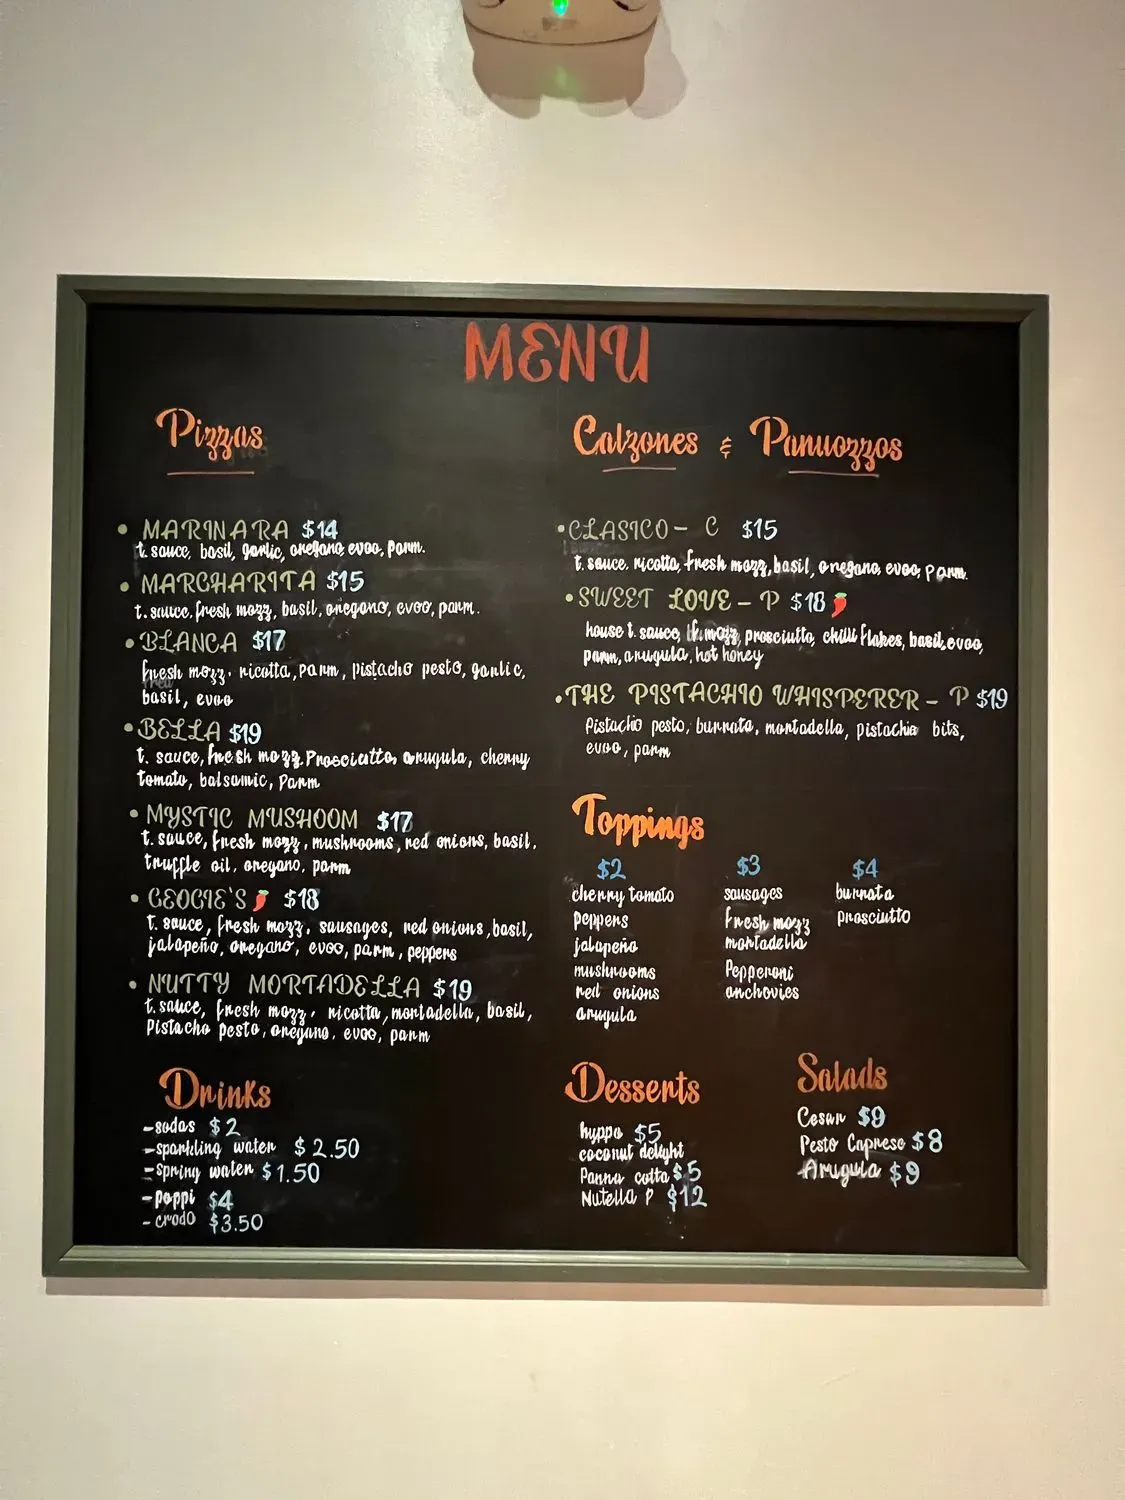 MENU
Pizzas
• MARINARA $14
t. sauce, basil, garlic, oregano, evoo, parm.
• MARGHARITA $15
t. sauce, fresh mozz, basil, oregano, evoo, parm.
• BLANCA $17
fresh mozz, ricotta, parm, pistacho pesto, garlic,
basil, evoo
• BELLA $19
t. sauce, fresh mozz, Prosciutto, arugula, cherry
tomato, balsamic, parm
• MYSTIC MUSHOOM $17
t. sauce, fresh mozz, mushrooms, red onions, basil,
truffle oil, oregano, parm
• GEOGIE'S 🌶 $18
t. sauce, fresh mozz, sausages, red onions, basil,
jalapeño, oregano, evoo, parm, peppers
• NUTTY MORTADELLA $19
t. sauce, fresh mozz, ricotta, mortadella, basil,
Pistacho pesto, oregano, evoo, parm
Drinks
-sodas $2
-sparkling water $2.50
-spring water $1.50
-poppi $4
-crodo $3.50
Calzones & Panuozzos
•CLASICO- C $15
t. sauce. ricotta, fresh mozz, basil, oregano, evoo, parm.
•SWEET LOVE - P $18 🌶
house t. sauce, fr. mozz, prosciutto, chilli flakes, basil, evoo,
parm, arugula, hot honey
•THE PISTACHIO WHISPERER - P $19
Pistachio pesto, burrata, mortadella, pistachio bits,
evoo, parm
Toppings
$2
cherry tomato
peppers
jalapeño
mushrooms
red onions
arugula
$3
sausages
fresh mozz
mortadella
Pepperoni
anchovies
$4
burrata
prosciutto
Desserts
hyppo $5
coconut delight
Panna cotta $5
Nutella P $12
Salads
Cesar $9
Pesto Caprese $8
Arugula $9